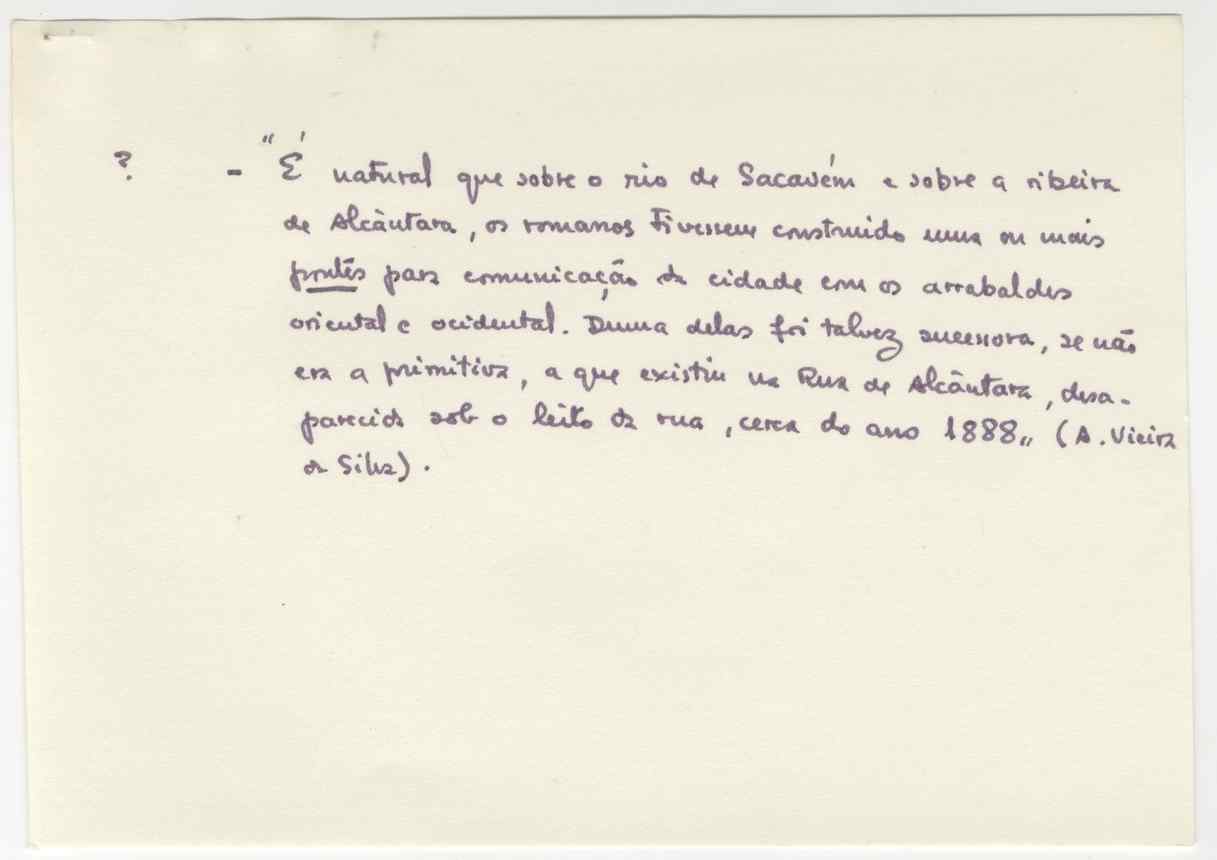 ? - "É natural que sobre o rio de Sacavém e sobre a ribeira
de Alcântara, os romanos tivessem construido uma ou mais
pontes para comunicação da cidade com os arrabaldes
oriental e ocidental. Duma delas foi talvez sucessora, se não
era a primitiva, a que existiu na Rua de Alcântara, desa-
parecida sob o leito da rua, cerca do ano 1888„ (A. Vieira
da Silva).